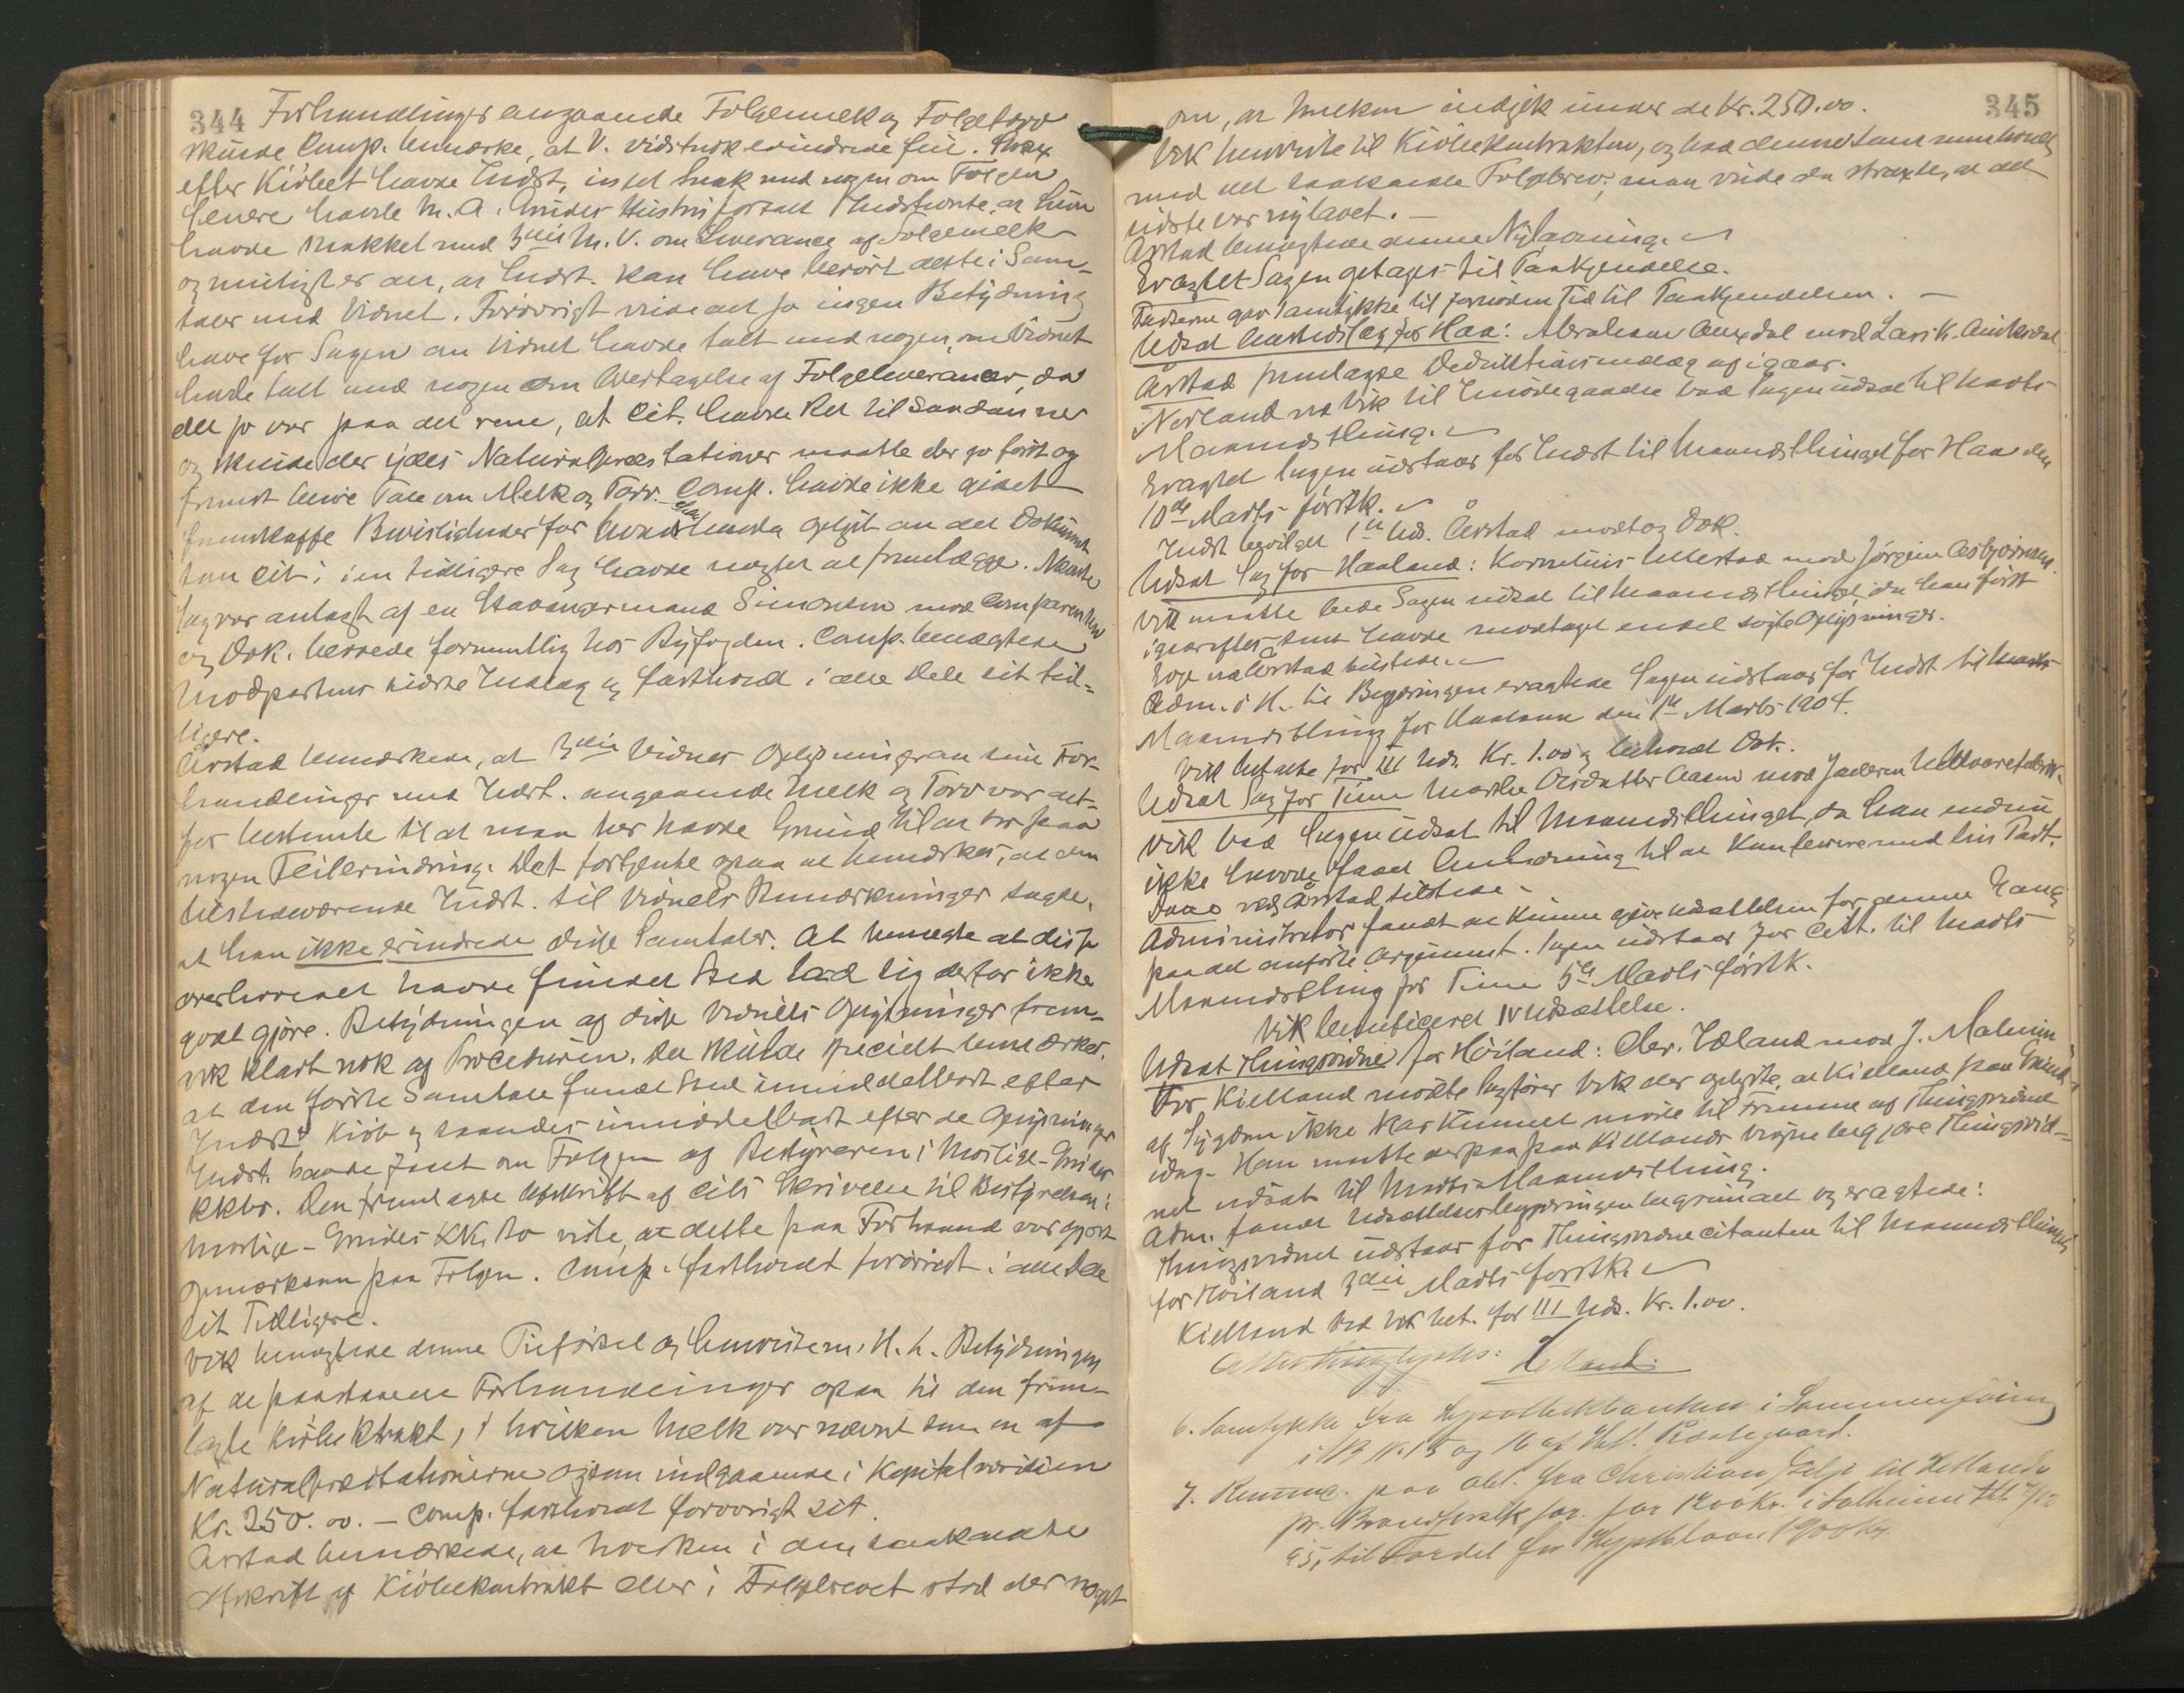 344 Forhandlinger angaaende Følgemelk og Følgetørv
skulde Comp. bemærke, at V. vidstnok erindrede feil. Strax
efter Kiøbet havde Indst. intet Snak med nogen om Følgen
Senere havde M. A. Grudes Hustru fortalt Indstevnte, at hun
havde snakket med 3die M. V. om Leverance af Følgemelk
og muligt er det, at Indst. kan have berørt dette i Sam-
taler med Vidnet. Forøvrigt vilde det jo ingen Betydning
have for Sagen om Vidnet havde talt med nogen, om Vidnet
havde talt med nogen om Overtagelse af Følgeleverancer, da
det jo var paa det rene, at Cit. havde Ret til saadanne
og skulde der ydes Naturalpræstationer maatte der jo først og
fremst blive Tale om Melk og Tørv. Comp. havde ikke gidet
fremskaffe Bevisligheder for hvad han havde oplyst om det Dokument
som Cit. i en tidligere Sag havde nægtet at fremlægge. Nævnte
Sag var anlagt af en Stavangermand Simonsen mod Comparenten
og Dok. beroede formentlig hos Byfogden. Comp. benægtede
Modpartens sidste Indlæg og fastholdt i alle Dele sit tid-
ligere.
Årstad bemærkede, at 3die Vidnes Oplysninger om sine For-
handlinger med Indst. angaaende Melk og Tørv var alt-
for bestemte til at man her havde Grund til at tro paa
nogen Feilerindring. Det fortjente ogsaa at bemærkes, at den
tilstedeværende Indst. til Vidnets Bemærkninger sagde,
at han ikke erindrede disse Samtaler. At benegte at disse
overhovedet havde fundet Sted lod sig derfor ikke
godt gjøre. Betydningen af disse Vidnets Oplysninger frem-
gik klart nok af Proceduren. Det skulde specielt bemærkes,
at den første Samtale fandt Sted umiddelbart efter
Indst.s Kiøb og saaledes umiddelbart efter de Oplysninger
Indst. havde faaet om Følgen af Bestyreren i Moslige-Grudes
KKbo. Den fremlagte Afskrift af Cits Skrivelse til Bestyrelsen i
Moslige-Grudes KK. Bo viste, at dette paa Forhaand var gjort
opmærksom paa Følgen. Comp. fastholdt forøvrigt i alle Dele
sit Tidligere.
Vik benægtede denne Tilførsel og henviste m. H. t. Betydningen
af de paastaaede Forhandlinger ogsaa til den frem-
lagte Kiøbektrakt, i hvilken Melk var nævnt som en af
Naturalpræstationerne og som indgaaende i Kapitalværdien
Kr. 250.00. - Comp. fastholdt forøvrigt sit.
Årstad bemærkede, at hverken i den saakaldte
Afskrift af Kiøbekontrakt eller i Følgebrevet stod der noget
345
om, at Melken indgik under de Kr. 250.00.
Vik henviste til Kiøbekontrakten, og bad denne sammenholdt
med det saakaldte Følgebrev; man vilde da strax se, at det
sidste var nylavet. -
Årstad benægtede denne Nylavning.
Eragtet Sagen optages til Paakjendelse.
Parterne gav Samtykke til fornøden Tid til Paakjendelsen. -
Udsat Gjæstretssag for Haa: Abraham Auedal mod Lars K. Auedal
Årstad fremlagde Deduktionsindlæg af igaar.
Norland ved Vik til Imødegaaelse bad Sagen udsat til Marts
Maanedsthing.
Eragtet Sagen udstaar for Indst. til Maanedsthinget for Haa den
10de Marts førstk.
Indst. bevilget 1ste Uds. Årstad modtog Dok.
Udsat Sag for Haaland: Kornelius Ullestad mod Jørgen Asbjørnsen.
Vik maatte bede Sagen udsat til Maanedsthinget, da han først
igaaraftes sent havde modtaget endel søgte Oplysninger.
Egge ved Årstad tilstede.
Adm. i H. til Begjæringen eragtede Sagen udstaar for Indst. til Marts
Maanedsthing for Haaland den 1ste Marts 1904.
Vik betalte for III Uds. Kr. 1.00 og beholdt Dok.
Udsat Sag for Time Marthe Olsdatter Aasen mod Jæderen
Vik bad Sagen udsat til Maanedsthinget, da han endnu
ikke havde faaet Anledning til at konferere med sin Part.
Daae ved Årstad tilstede.
Administrator fandt at kunne give Udsættelsen for denne Gang
paa det anførte Argument. Sagen udstaar for Citt. til Marts
Maanedsthing for Time 5te Marts førstk.
Vik beneficeret IV Udsættelse.
Udsat Thingsvidne for Høiland: Chr. Iæland mod J. Malmin
For Kielland mødte Sagfører Vik der oplyste, at Kielland paa Grund
af Sygdom ikke har kunnet møde til Fremme af Thingsvidnet
idag. Han maatte derpaa paa Kiellands Vegne begjære Thingsvid-
net udsat til Marts-Maanedsthing.
Adm. fandt Udsættelsesbegjæringen begrundet og eragtede:
Thingsvidnet udstaar for Thingsvidnecitanten til Maanedsthinget
for Høiland 3die Marts førstk.
Kielland ved Vik bet. for III Uds. Kr. 1.00.
Atter thinglystes:
6. Samtykke fra Hypothekbanken i Sammenføining
i 19 N. 15 og 16 af Præstegaard.
7. Renunc. paa obl. fra Christian til Hetlands
pr. Brandforsk for. for 1200 Kr. i Solheim tgl. 7/12
95, til Fordel for Hypothlaan 1900 Kr.